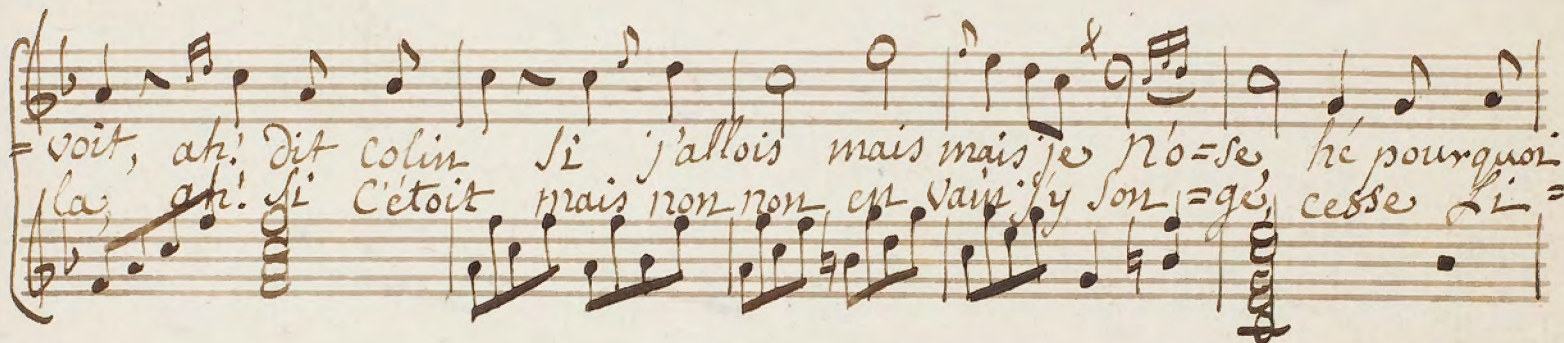 =voit, ah! dit colin si j'allois mais mais je n'ô=se, hé pourquoi
la, ah! si c'étoit mais non non en vain j'y son=ge, cesse Li=